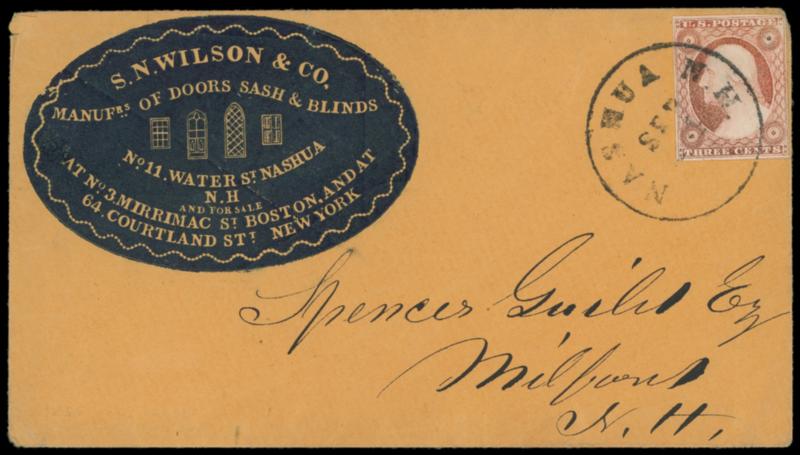 S.N. WILSON & CO.
MANUFRS OF DOORS SASH & BLINDS
No 11. WATER ST NASHUA
N.H
AND FOR SALE
AT No 3. MIRRIMAC ST BOSTON. AND AT
64. COURTLAND STT NEW YORK
U.S. POSTAGE
THREE CENTS
NASHUA N.H.
SEP
Spencer Guild Esq
Milford
N. H.